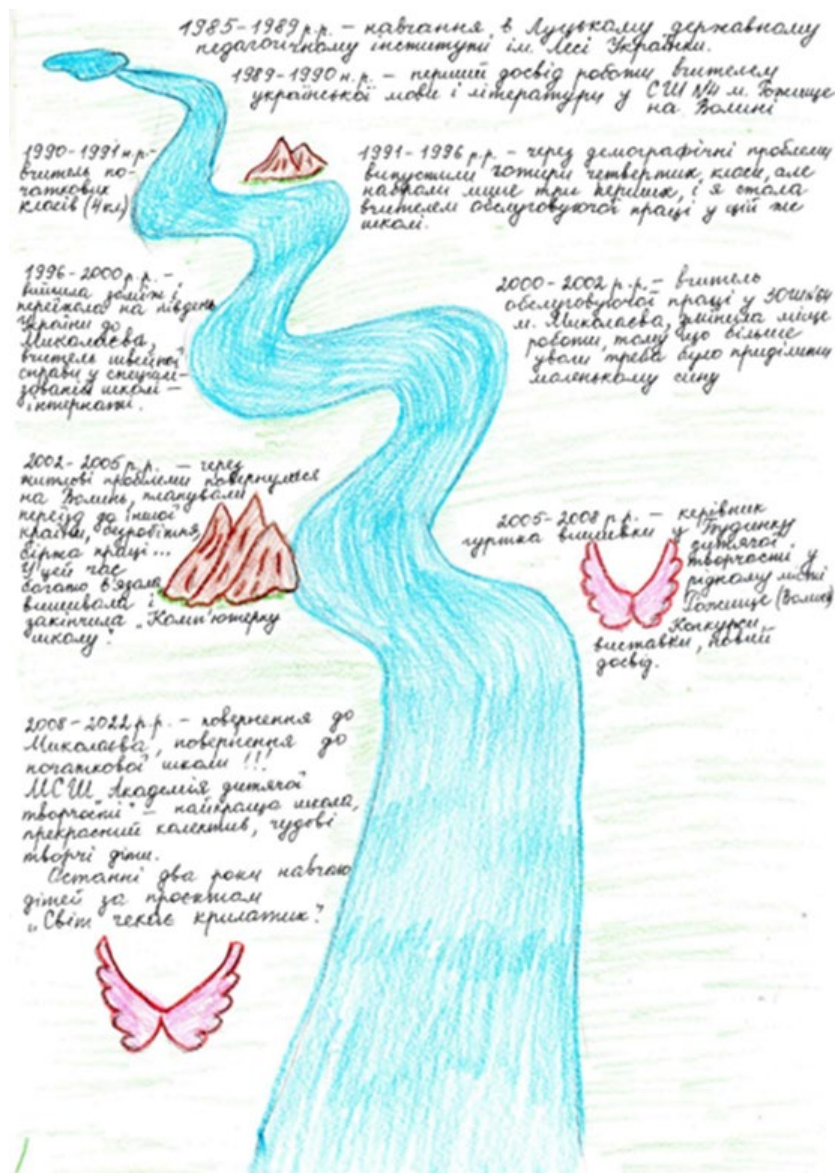 1985-1989 р.р. – навчання в Луцькому державному
педагогічному інституті ім. Лесі Українки.
1989-1990 н.р. – перший досвід роботи вчителем
української мови і літератури у СШ №4 м. Рожище
на Волині
1990-1991 н.р. –
вчитель по-
чаткових
класів (4 кл)
1991-1996 р.р. – через демографічні проблеми
випустили чотири четвертих класи, але
набрали лише три перших, і я стала
вчителем обслуговуючої праці у цій же
школі.
1996-2000 р.р. –
вийшла заміж і
переїхала на південь
України до
Миколаєва,
вчитель швейної
справи у спеціалі-
зованій школі –
інтернаті.
2000-2002 р.р. – вчитель
обслуговуючої праці у ЗОШ №64
м. Миколаєва, змінила місце
роботи, тому що більше
уваги треба було приділяти
маленькому сину
2002-2005 р.р. – через
житлові проблеми повернулися
на Волинь, планували
переїзд до іншої
країни, безробіття,
біржа праці...
У цей час
багато в'язала,
вишивала і
закінчила „Комп'ютерну
школу".
2005-2008 р.р. – керівник
гуртка вишивки у Будинку
дитячої
творчості у
рідному місті
Рожище (Волинь)
Конкурси,
виставки, новий
досвід.
2008-2022 р.р. – повернення до
Миколаєва, повернення до
початкової школи !!!
МСШ „Академія дитячої
творчості" – найкраща школа,
прекрасний колектив, чудові
творчі діти.
Останні два роки навчаю
дітей за проєктом
„Світ чекає крилатих".